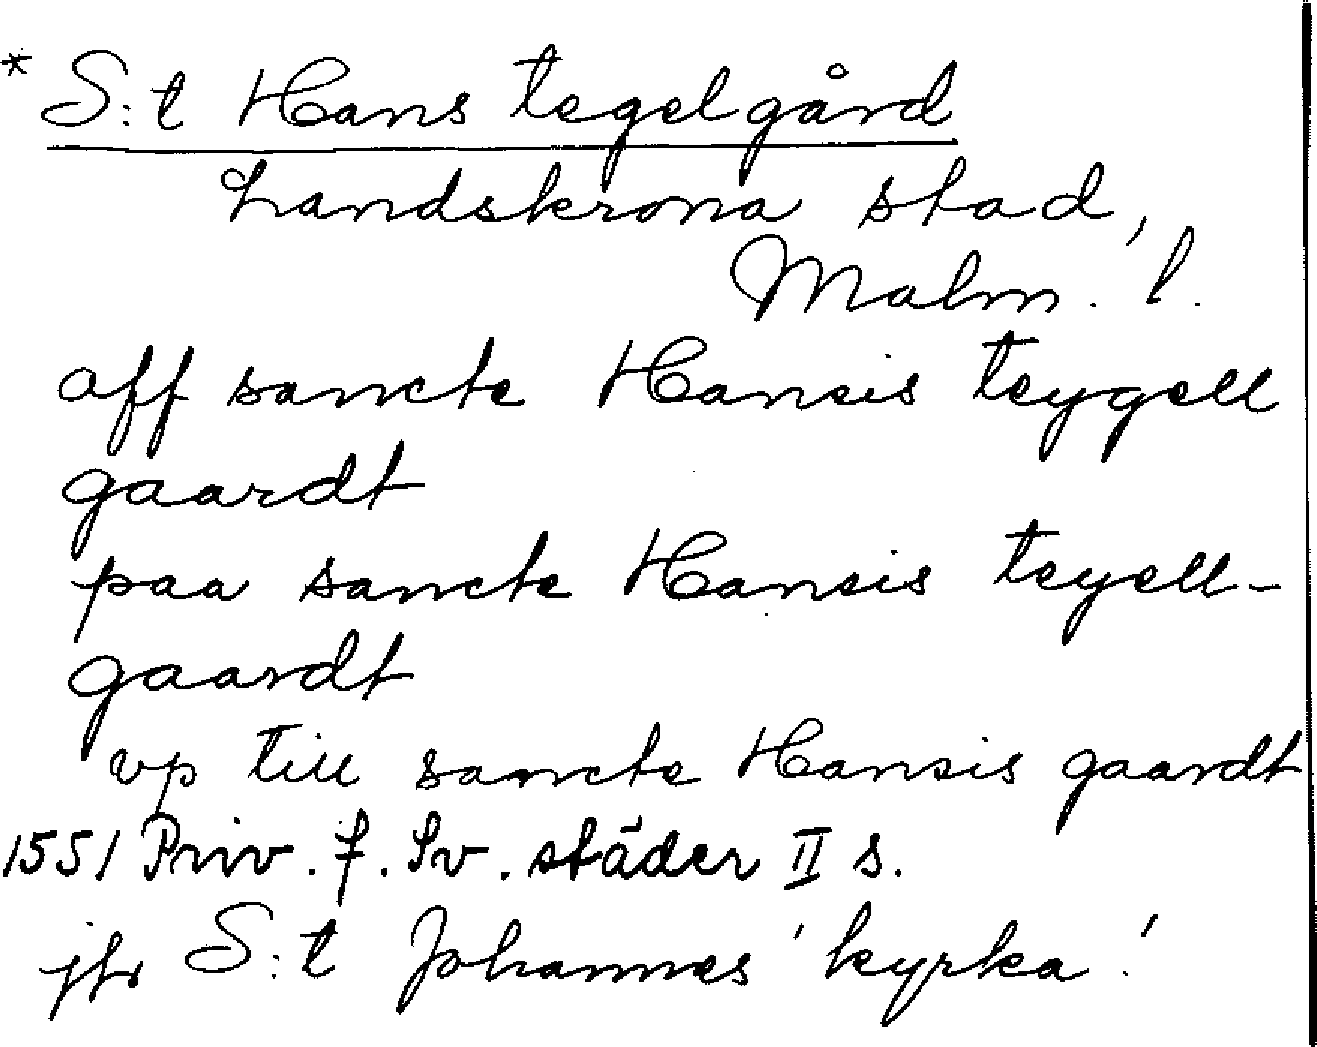 * S:t Hans tegelgård
Landskrona stad,
Malm. l.
aff sancte Hansis teygell
gaardt
paa sancte Hansis teyell-
gaardt
vp till sancte Hansis gaardt
1551 Priv. f. Sv. städer II s.
jfr S:t Johannes' kyrka!